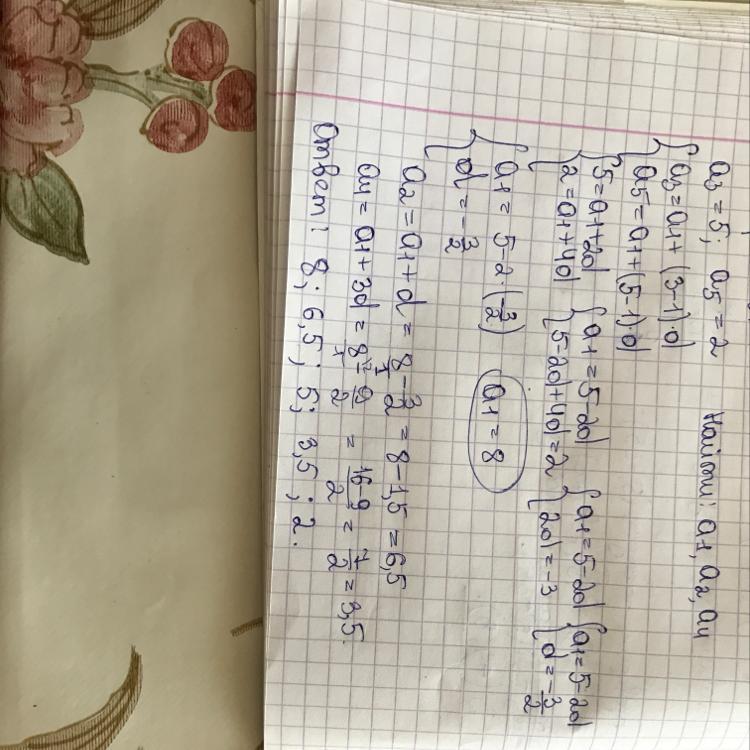 a₃ = 5; a₅ = 2 Найти: a₁, a₂, a₄
{ a₃ = a₁ + (3-1)·d
{ a₅ = a₁ + (5-1)·d
{ 5 = a₁ + 2d { a₁ = 5-2d { a₁ = 5-2d { a₁ = 5-2d
{ 2 = a₁ + 4d { 5-2d+4d = 2 { 2d = -3 { d = -3/2
{ a₁ = 5-2·(-3/2) a₁ = 8
{ d = -3/2
a₂ = a₁ + d = 8/1 - 3/2 = 8-1,5 = 6,5
a₄ = a₁ + 3d = 8/1 - 9/2 = 16-9/2 = 7/2 = 3,5.
Ответ: 8; 6,5; 5; 3,5; 2.